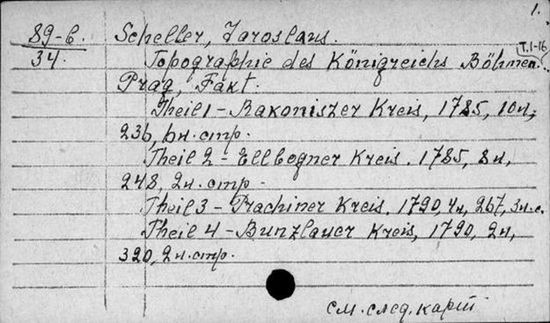 1.
89-6. Scheller, Jaroslaus.
34. Topographie des Königreichs Böhmen. T.1-16
Prag, Fakt.
Theil 1 - Rakoniszer Kreis, 1785, 10н,
236, 6н. стр.
Theil 2 - Ellbogner Kreis. 1785, 8н,
248, 2н. стр.
Theil 3 - Prachiner Kreis. 1790, 4н, 267, 3н.с.
Theil 4 - Bunzlauer Kreis, 1790, 2н,
320, 2н. стр.
см. след. карт